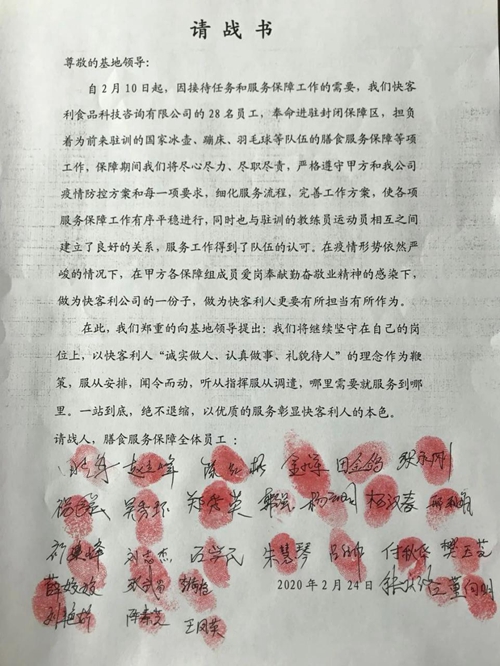 请战书
尊敬的基地领导：
自2月10日起，因接待任务和服务保障工作的需要，我们快客
利食品科技咨询有限公司的28名员工，奉命进驻封闭保障区，担负
着为前来驻训的国家冰壶、蹦床、羽毛球等队伍的膳食服务保障等项
工作，保障期间我们将尽心尽力、尽职尽责，严格遵守甲方和我公司
疫情防控方案和每一项要求，细化服务流程，完善工作方案，使各项
服务保障工作有序平稳进行，同时也与驻训的教练员运动员相互之间
建立了良好的关系，服务工作得到了队伍的认可。在疫情形势依然严
峻的情况下，在甲方各保障组成员爱岗奉献勤奋敬业精神的感染下，
做为快客利公司的一份子，做为快客利人更要有所担当有所作为。
在此，我们郑重的向基地领导提出：我们将继续坚守在自己的岗
位上，以快客利人“诚实做人、认真做事、礼貌待人”的理念作为鞭
策，服从安排，闻令而动，听从指挥服从调遣，哪里需要就服务到哪
里。一站到底，绝不退缩，以优质的服务彰显快客利人的本色。
请战人，膳食服务保障全体员工：
田金鸽
郑秀英
刘志杰 朱慧琴 樊玉芝
2020年2月24日 董向明
王凤英